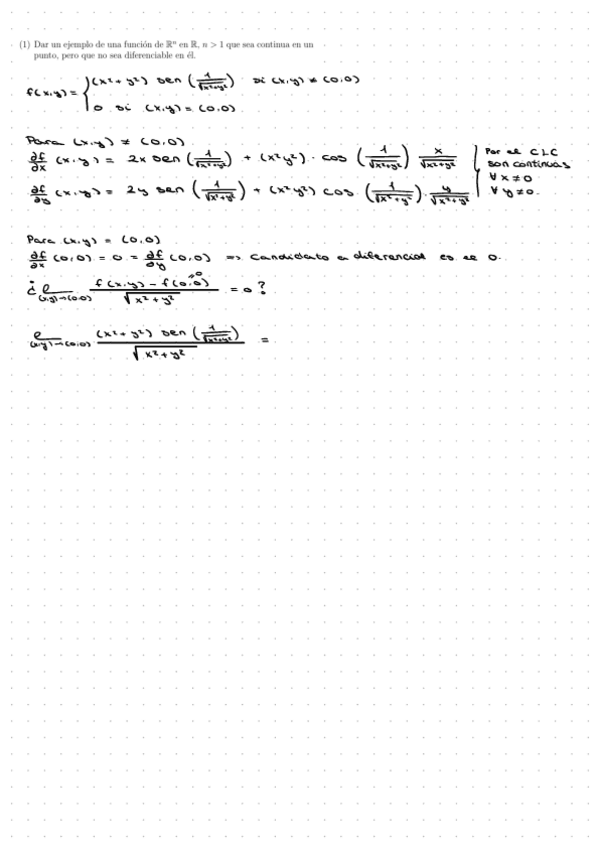 (1) Dar un ejemplo de una función de ℝⁿ en ℝ, n > 1 que sea continua en un
punto, pero que no sea diferenciable en él.
f(x,y) = { (x² + y²) sen (1/√(x²+y²)) si (x,y) ≠ (0,0)
0 si (x,y) = (0,0)
Para (x,y) ≠ (0,0)
∂f/∂x (x,y) = 2x sen (1/√(x²+y²)) + (x²y²) · cos (1/√(x²+y²)) x/√(x²+y²)
∂f/∂y (x,y) = 2y sen (1/√(x²+y²)) + (x²y²) cos (1/√(x²+y²)) · y/√(x²+y²)
Por el CLC
son continuas
∀ x ≠ 0
∀ y ≠ 0.
Para (x,y) = (0,0)
∂f/∂x (0,0) = 0 = ∂f/∂y (0,0) => Candidato a diferencial es el 0.
¿ l (x,y)→(0,0) f(x,y) - f(0,0)→0 / √(x² + y²) = 0 ?
l (x,y)→(0,0) (x² + y²) sen (1/√(x²+y²)) / √(x² + y²) =